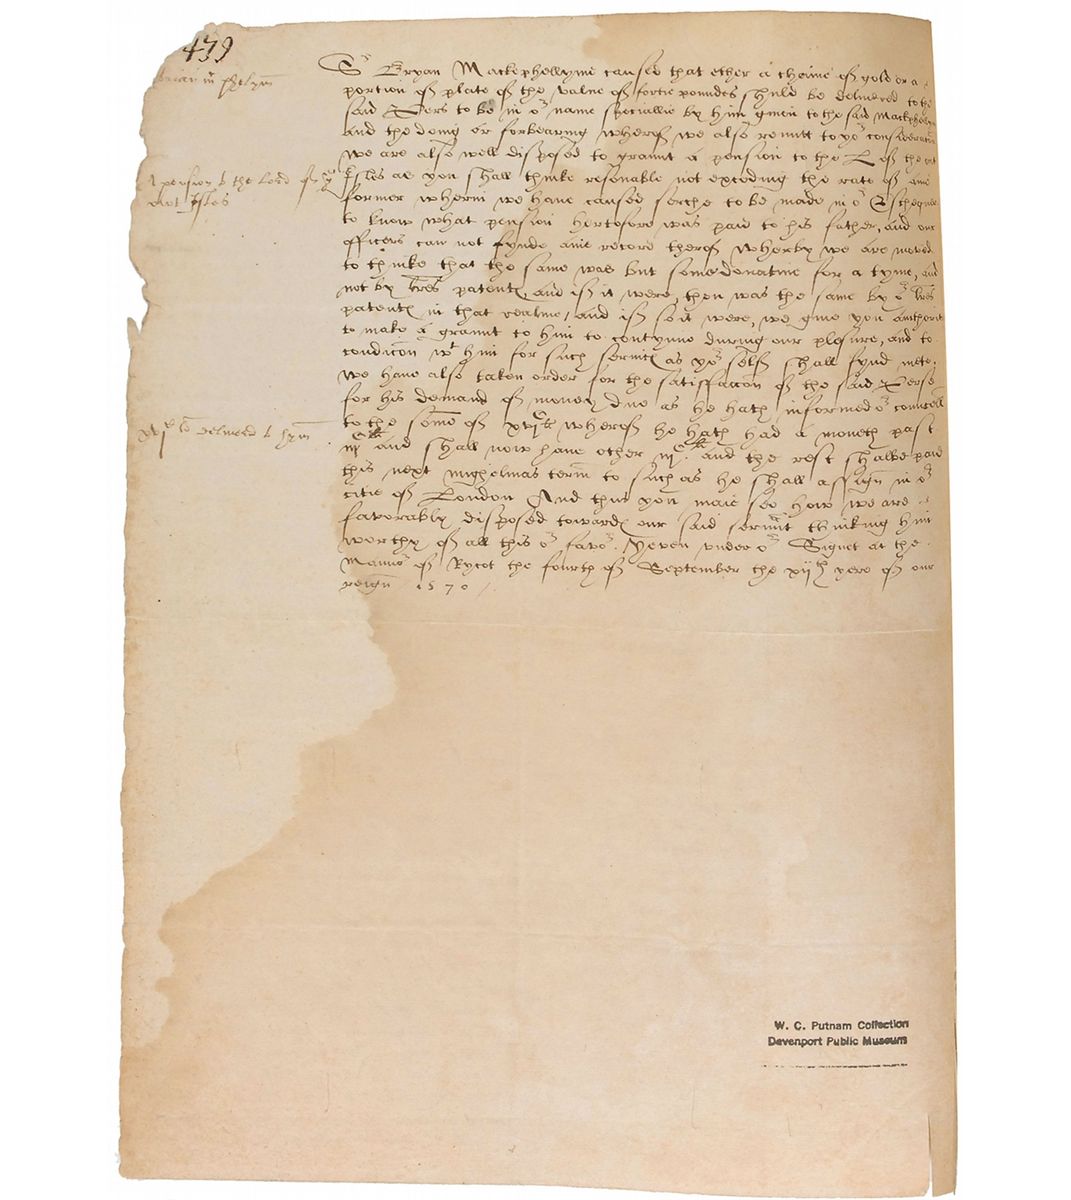 439
Brian m Phelym
Sr Bryan Mackephellyme caused that ether a cheine of gold or a
portion of plate of the value of fortie poundes shuld be delivered to the
said Pers to be in or name speciallie by him given to the said Mackephelly
and the doing or forbearing wherof we also remitt to yor consideracion
we are also well disposed to graunt a pension to the L of the out
A pension to the Lord of ye
out Isles
Isles as you shall thinke resonable not exceding the rate of anie
former wherin we have caused serche to be made in or Eschequier
to know what pension hertofore was paid to his father, and our
officers can not fynde anie record therof wherby we are moved
to thinke that the same was but some donative for a tyme, and
not by lres patentes, and if it were, then was the same by or lres
patentes in that realme, and if so it were, we give you authoritie
to make a graunt to him to contynue during our plesure, and to
condicon wt him for such services as yor self shall fynd mete.
We have also taken order for the satisfaccon of the said Perse
for his demand of money due as he hath informed or counsell
to the some of xvjC li wherof he hath had a moneth past
delivered to hym
iijC li and shall now have other iijC li and the rest shalbe paid
this next mighelmas terme to such as he shall assigne in or
citie of London And thus you maie see how we are
favorably disposed towardes our said servant thinking him
worthy of all this or favor. Yeven under or Signet at the
Manor of Rycot the fourth of September the xijth yere of our
reign 1570
W. C. Putnam Collection
Davenport Public Museum